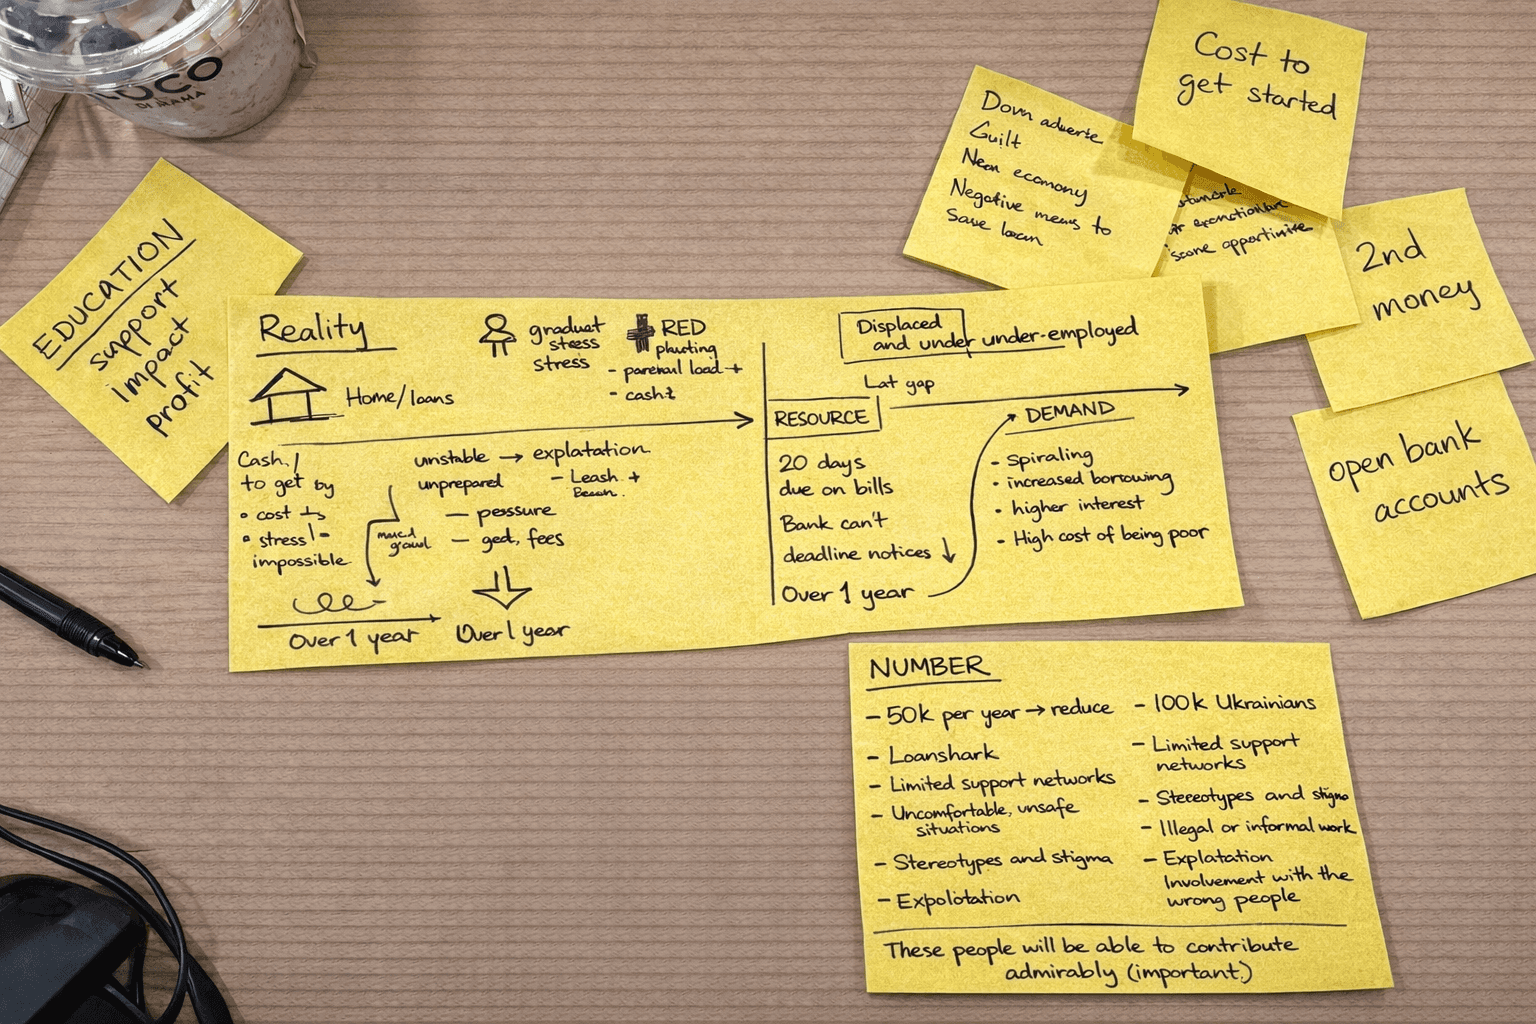 OCO
DI MAMA
Cost to
get started
Down adverte
Guilt
New economy
Negative means to
Save loan
2nd
money
open bank
accounts
EDUCATION
support
impact
profit
Reality
Home/loans
graduet
stress
stress
RED
- cash
Cash /
to get by
• cost
• stress
impossible
unstable → explatation
unprepared
- Leash +
— pessure
— ged, fees
Over 1 year
Over 1 year
Displaced
and under under-employed
Lat gap
RESOURCE
20 days
due on bills
Bank can't
deadline notices ↓
Over 1 year
DEMAND
• Spiraling
• increased borrowing
• higher interest
• High cost of being poor
NUMBER
- 50k per year → reduce
- Loanshark
- Limited support networks
- Uncomfortable, unsafe
situations
- Stereotypes and stigma
- Expolotation
- 100k Ukrainians
- Limited support
networks
- Steeotypes and stigma
- Illegal or informal work
- Explatation
Involvement with the
wrong people
These people will be able to contribute
admirably (important.)